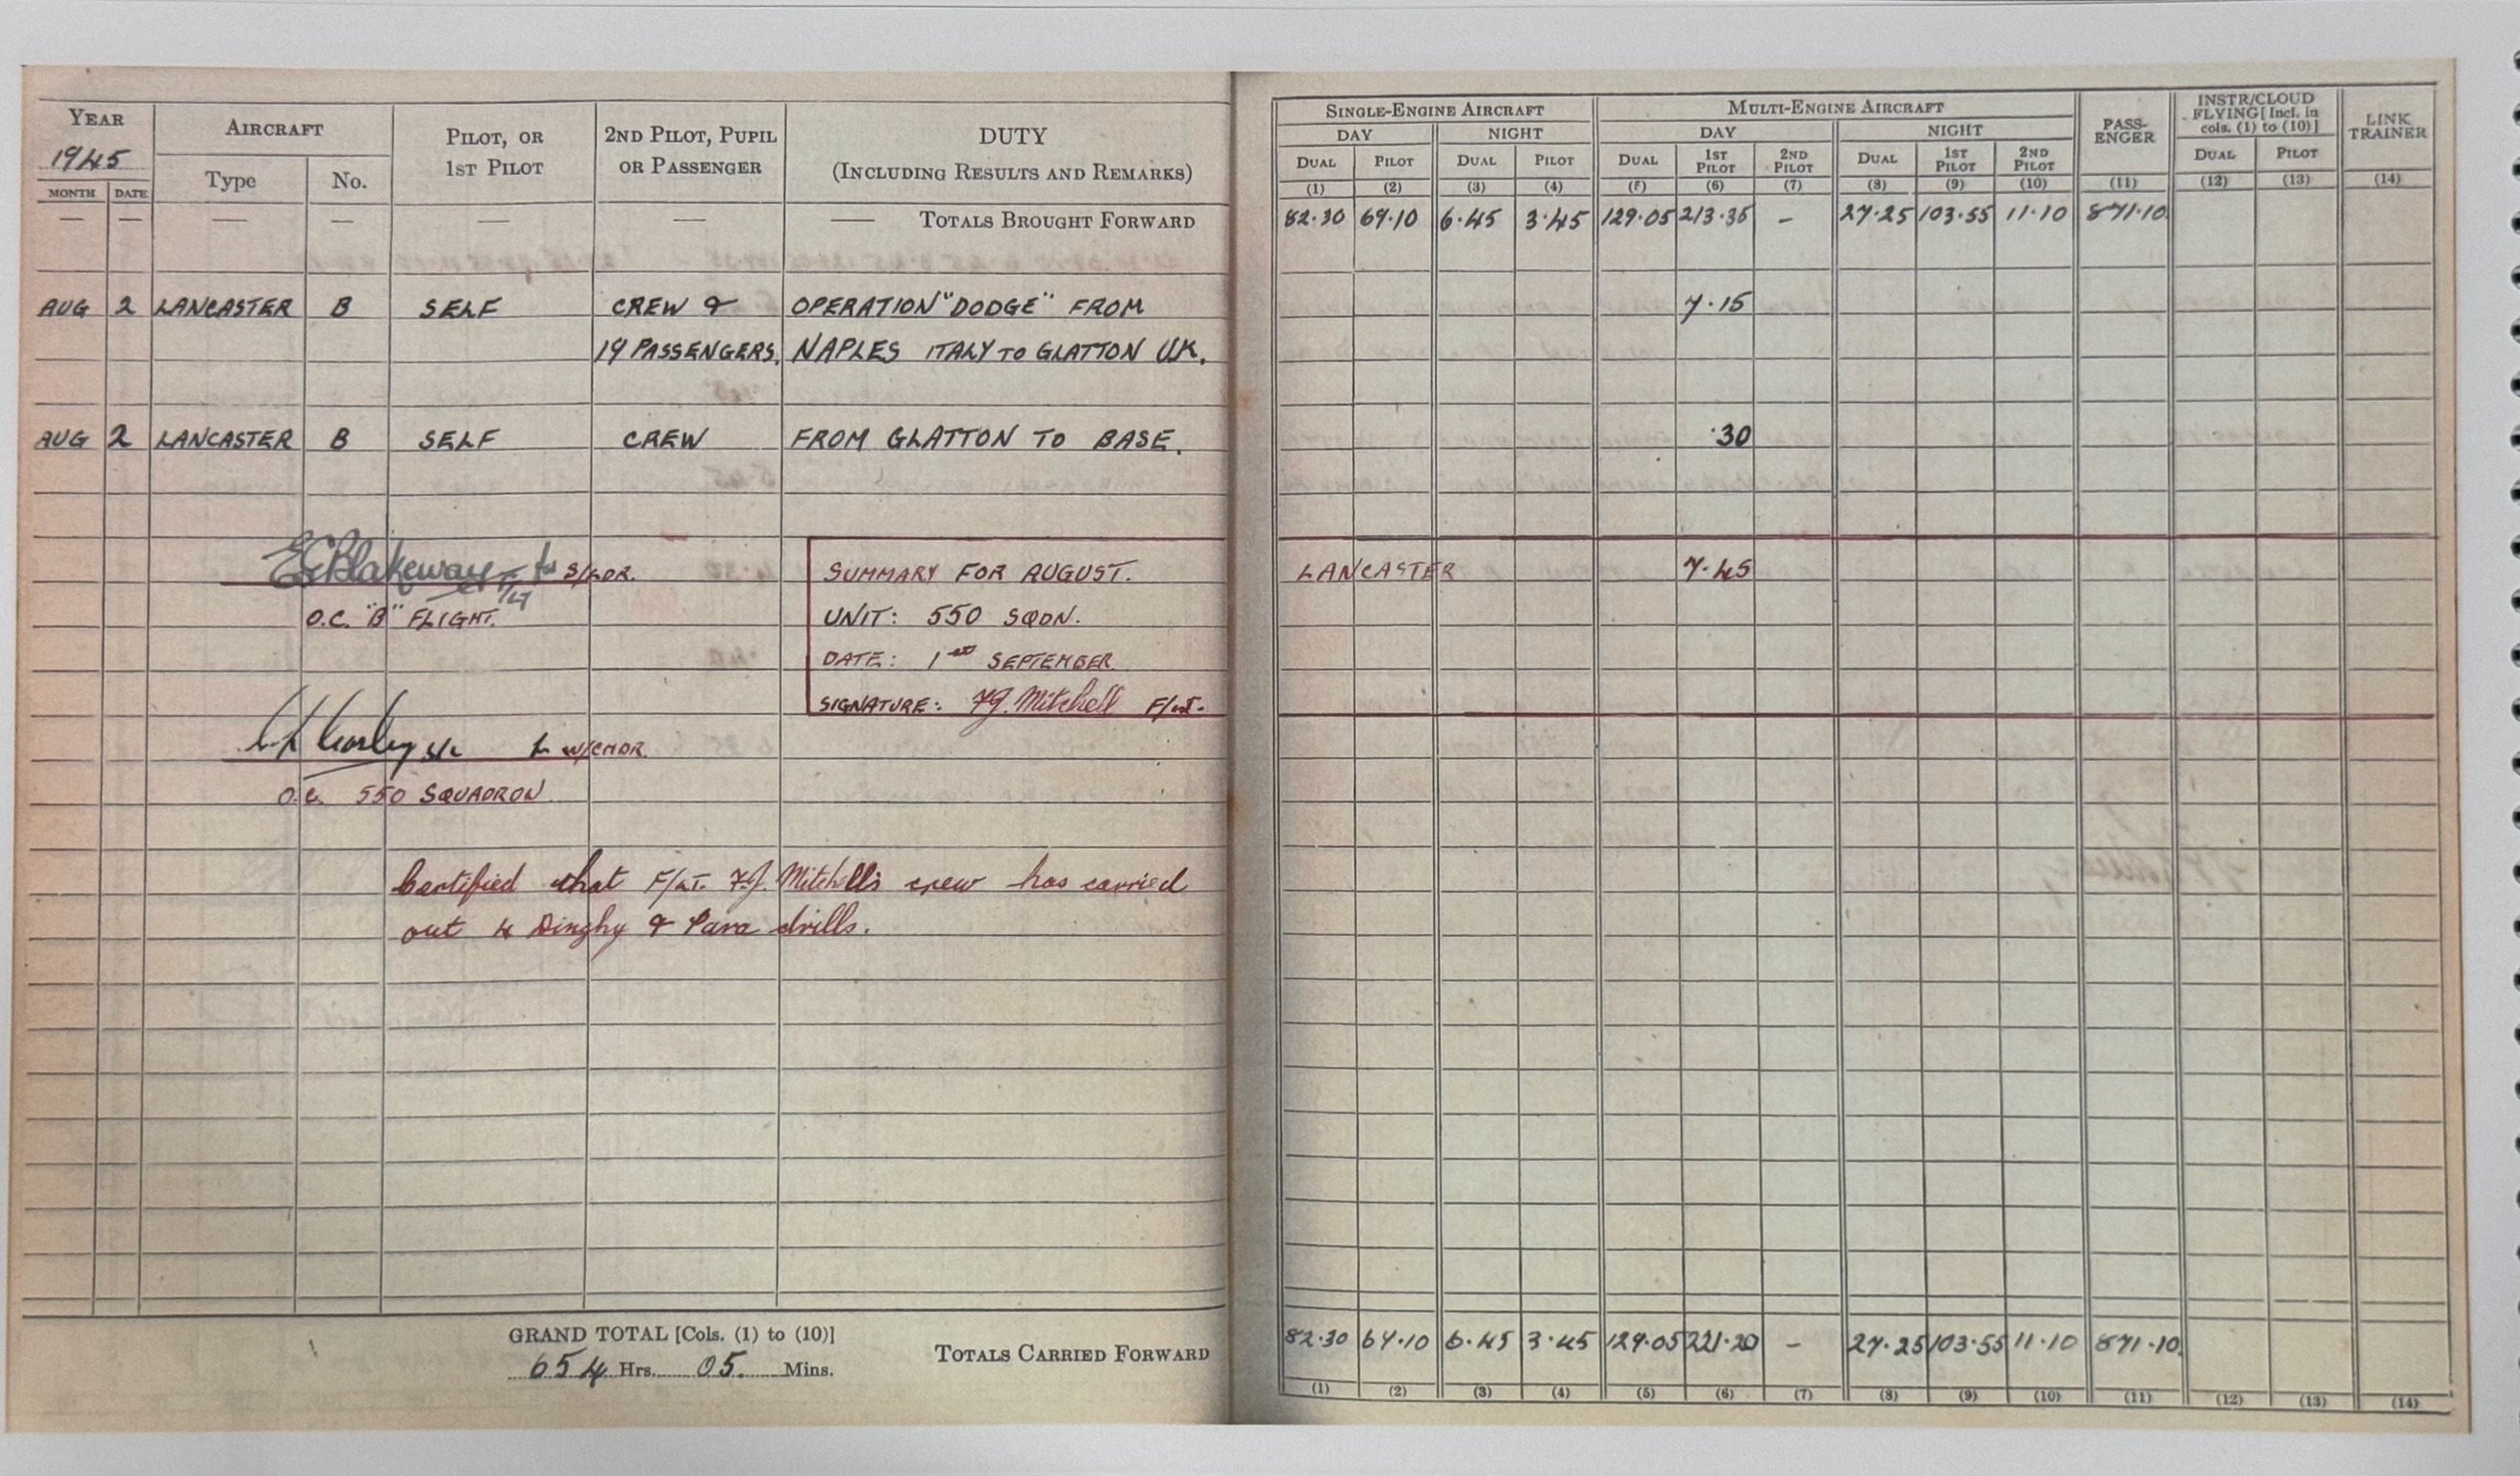 YEAR
1945
AIRCRAFT
PILOT, OR
1ST PILOT
2ND PILOT, PUPIL
OR PASSENGER
DUTY
(INCLUDING RESULTS AND REMARKS)
SINGLE-ENGINE AIRCRAFT
MULTI-ENGINE AIRCRAFT
PASS-
ENGER
INSTR/CLOUD
FLYING [Incl. in
cols. (1) to (10)]
LINK
TRAINER
MONTH DATE Type No.
DAY NIGHT DAY NIGHT
DUAL PILOT DUAL PILOT DUAL 1ST PILOT 2ND PILOT DUAL 1ST PILOT 2ND PILOT DUAL PILOT
(1) (2) (3) (4) (5) (6) (7) (8) (9) (10) (11) (12) (13) (14)
— — — — — — — TOTALS BROUGHT FORWARD 82·30 69·10 6·45 3·45 129·05 213·35 - 27·25 103·55 11·10 871·10
AUG 2 LANCASTER B SELF CREW & OPERATION "DODGE" FROM 7·15
19 PASSENGERS. NAPLES ITALY TO GLATTON U.K.
AUG 2 LANCASTER B SELF CREW FROM GLATTON TO BASE. ·30
EC Blakeway F/LT for S/LDR.
O.C. "B" FLIGHT.
SUMMARY FOR AUGUST. LANCASTER 7·45
UNIT: 550 SQDN.
DATE: 1st SEPTEMBER
SIGNATURE: F.J. Mitchell F/LT.
S/L for W/CMDR.
O.C. 550 SQUADRON
Certified that F/LT. F.J. Mitchell's crew has carried
out 4 Dinghy & Para drills.
GRAND TOTAL [Cols. (1) to (10)]
654 Hrs. 05. Mins.
TOTALS CARRIED FORWARD 82·30 69·10 6·45 3·45 129·05 221·20 - 27·25 103·55 11·10 871·10
(1) (2) (3) (4) (5) (6) (7) (8) (9) (10) (11) (12) (13) (14)